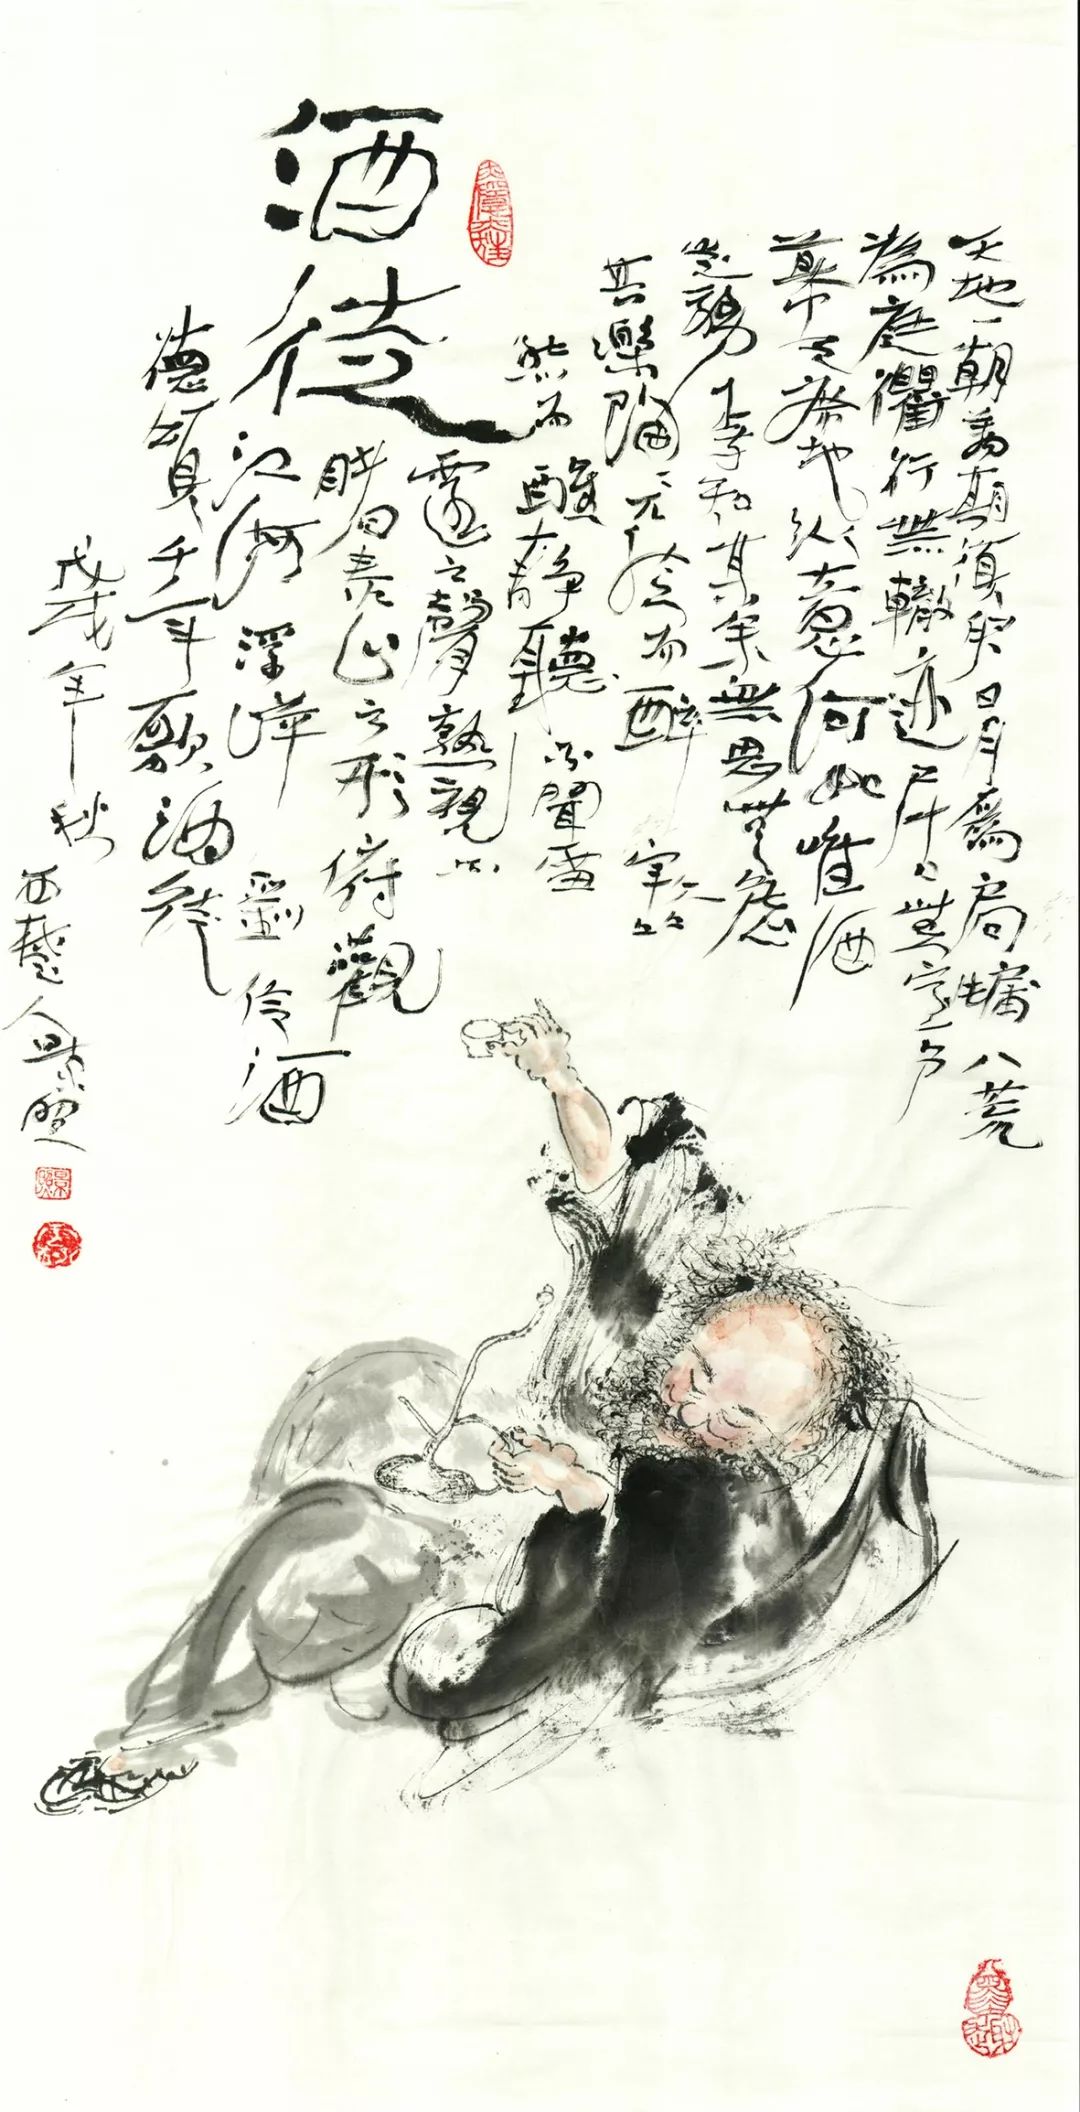 酒徒
天地一朝萬期須臾日月爲扃牖八荒
為庭衢行無轍迹居無室廬
幕天席地縱意何如唯酒
是務焉知其余無思無慮
其樂陶陶兀然而醉豁
然而醒靜聽不聞雷
霆之聲熟視不
睹泰山之形俯觀
江河浮萍劉伶酒
德頌千年歌酒徒
戊戌年秋西人景